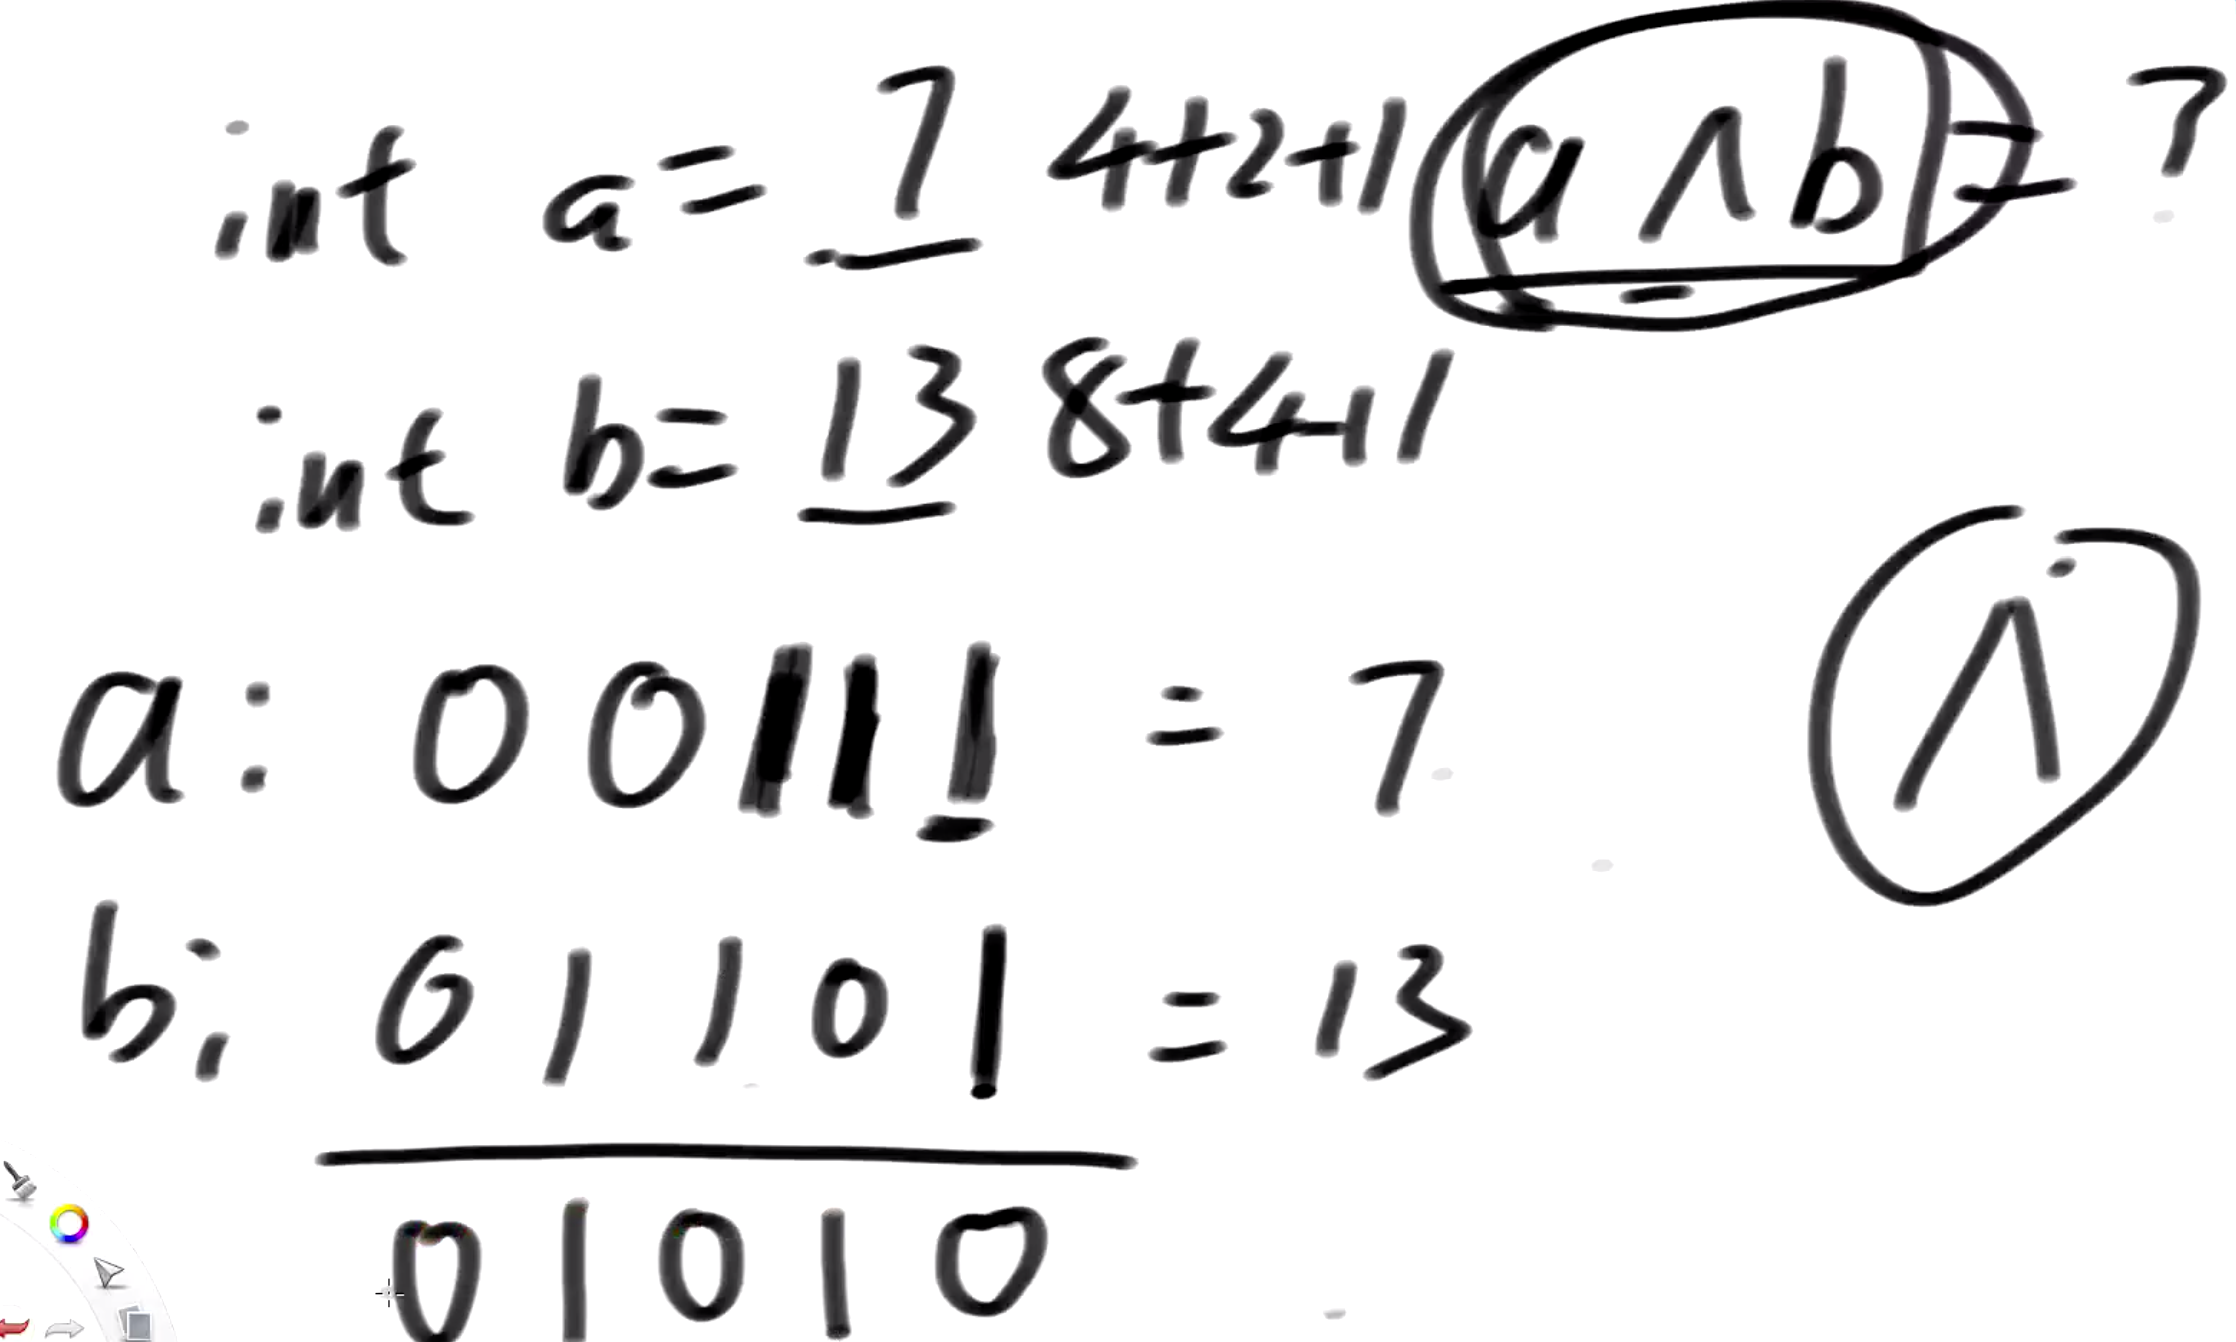 int a = 7 4+2+1 (a ∧ b) = ?
int b = 13 8+4+1
∧
a: 0 0 1 1 1 = 7
b: 0 1 1 0 1 = 13
0 1 0 1 0